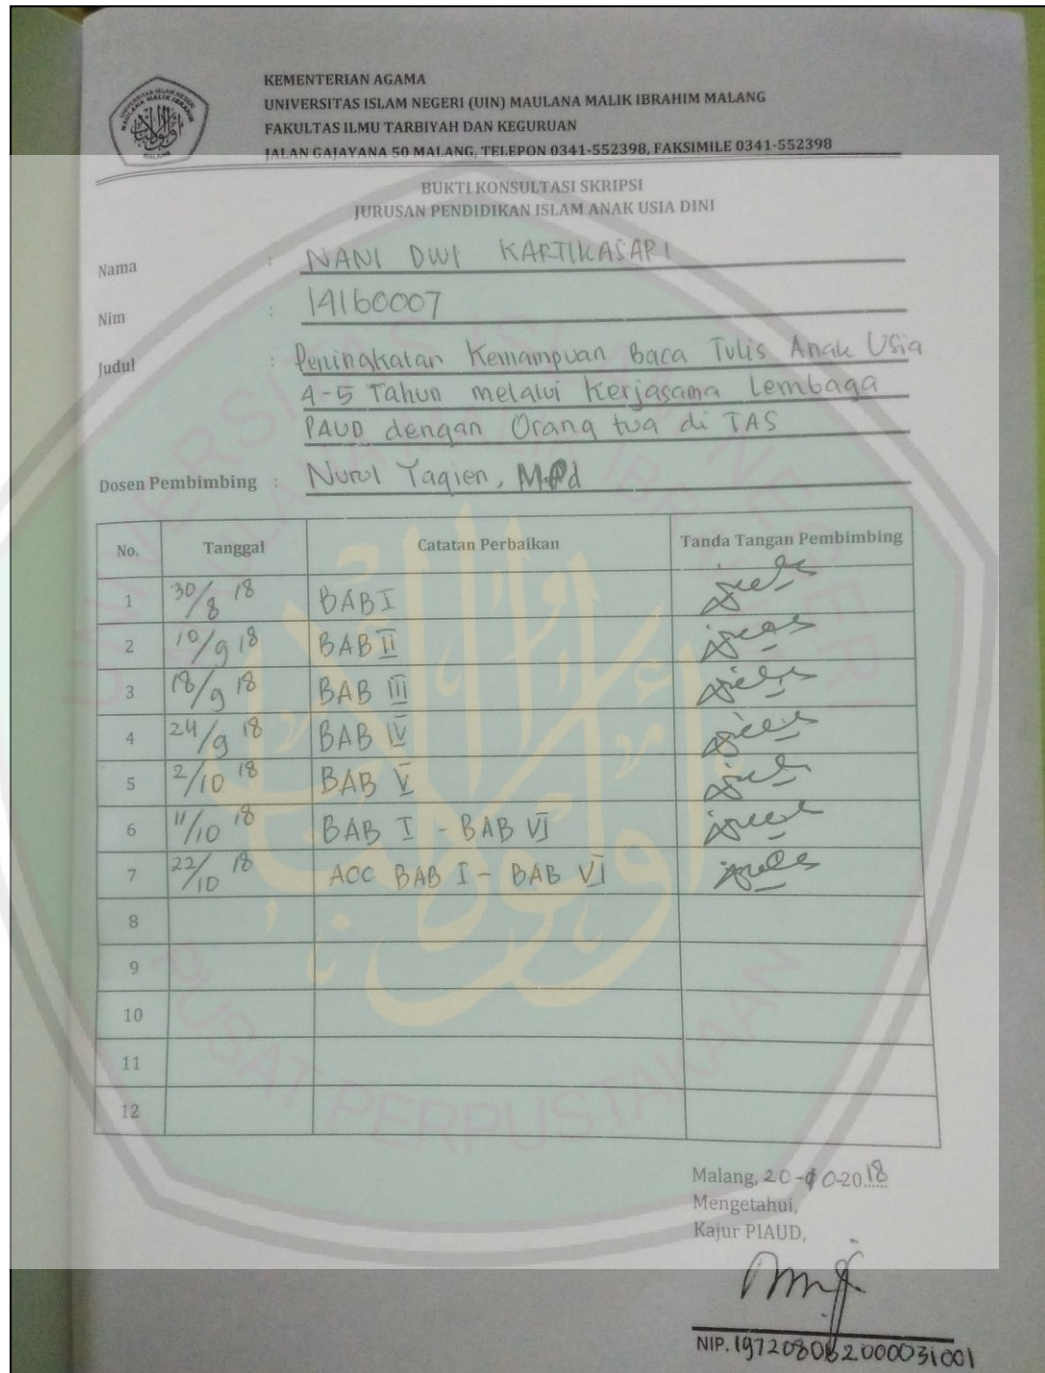 KEMENTERIAN AGAMA
UNIVERSITAS ISLAM NEGERI (UIN) MAULANA MALIK IBRAHIM MALANG
FAKULTAS ILMU TARBIYAH DAN KEGURUAN
JALAN GAJAYANA 50 MALANG, TELEPON 0341-552398, FAKSIMILE 0341-552398
BUKTI KONSULTASI SKRIPSI
JURUSAN PENDIDIKAN ISLAM ANAK USIA DINI
Nama : NANI DWI KARTIKASARI
Nim : 14160007
Judul : Peningkatan Kemampuan Baca Tulis Anak Usia
4-5 Tahun melalui Kerjasama Lembaga
PAUD dengan Orang tua di TAS
Dosen Pembimbing : Nurul Yaqien, M.Pd
No. Tanggal Catatan Perbaikan Tanda Tangan Pembimbing
1 30/8 18 BAB I
2 10/9 18 BAB II
3 18/9 18 BAB III
4 24/9 18 BAB IV
5 2/10 18 BAB V
6 11/10 18 BAB I - BAB VI
7 22/10 18 ACC BAB I - BAB VI
8
9
10
11
12
Malang, 20-10-2018
Mengetahui,
Kajur PIAUD,
NIP. 197208062000031001
PUSAT PERPUSTAKAAN